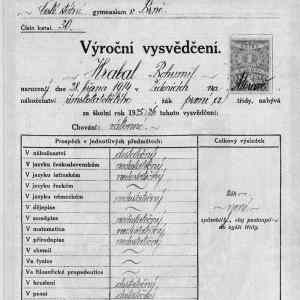 české státní gymnasium v Brně
Číslo katal. 20.
Výroční vysvědčení.
Hrabal Bohumil
narozený dne 28. března 1914 v Židenicích na Moravě
náboženství římskokatolického žák první
třídy, nabývá
za školní rok 1925/26 tohoto vysvědčení:
Chování: zákonné
Prospěch v jednotlivých předmětech: Celkový výsledek
V náboženství dostatečný
V jazyku československém nedostatečný
V jazyku latinském nedostatečný
V jazyku řeckém
V jazyku německém nedostatečný
V dějepise
V zeměpise nedostatečný
V matematice nedostatečný
V přírodopise nedostatečný
V chemii
Ve fysice
Ve filosofické propedeutice
V kreslení dostatečný
Žák
není
způsobilý, aby postoupil
do vyšší třídy.